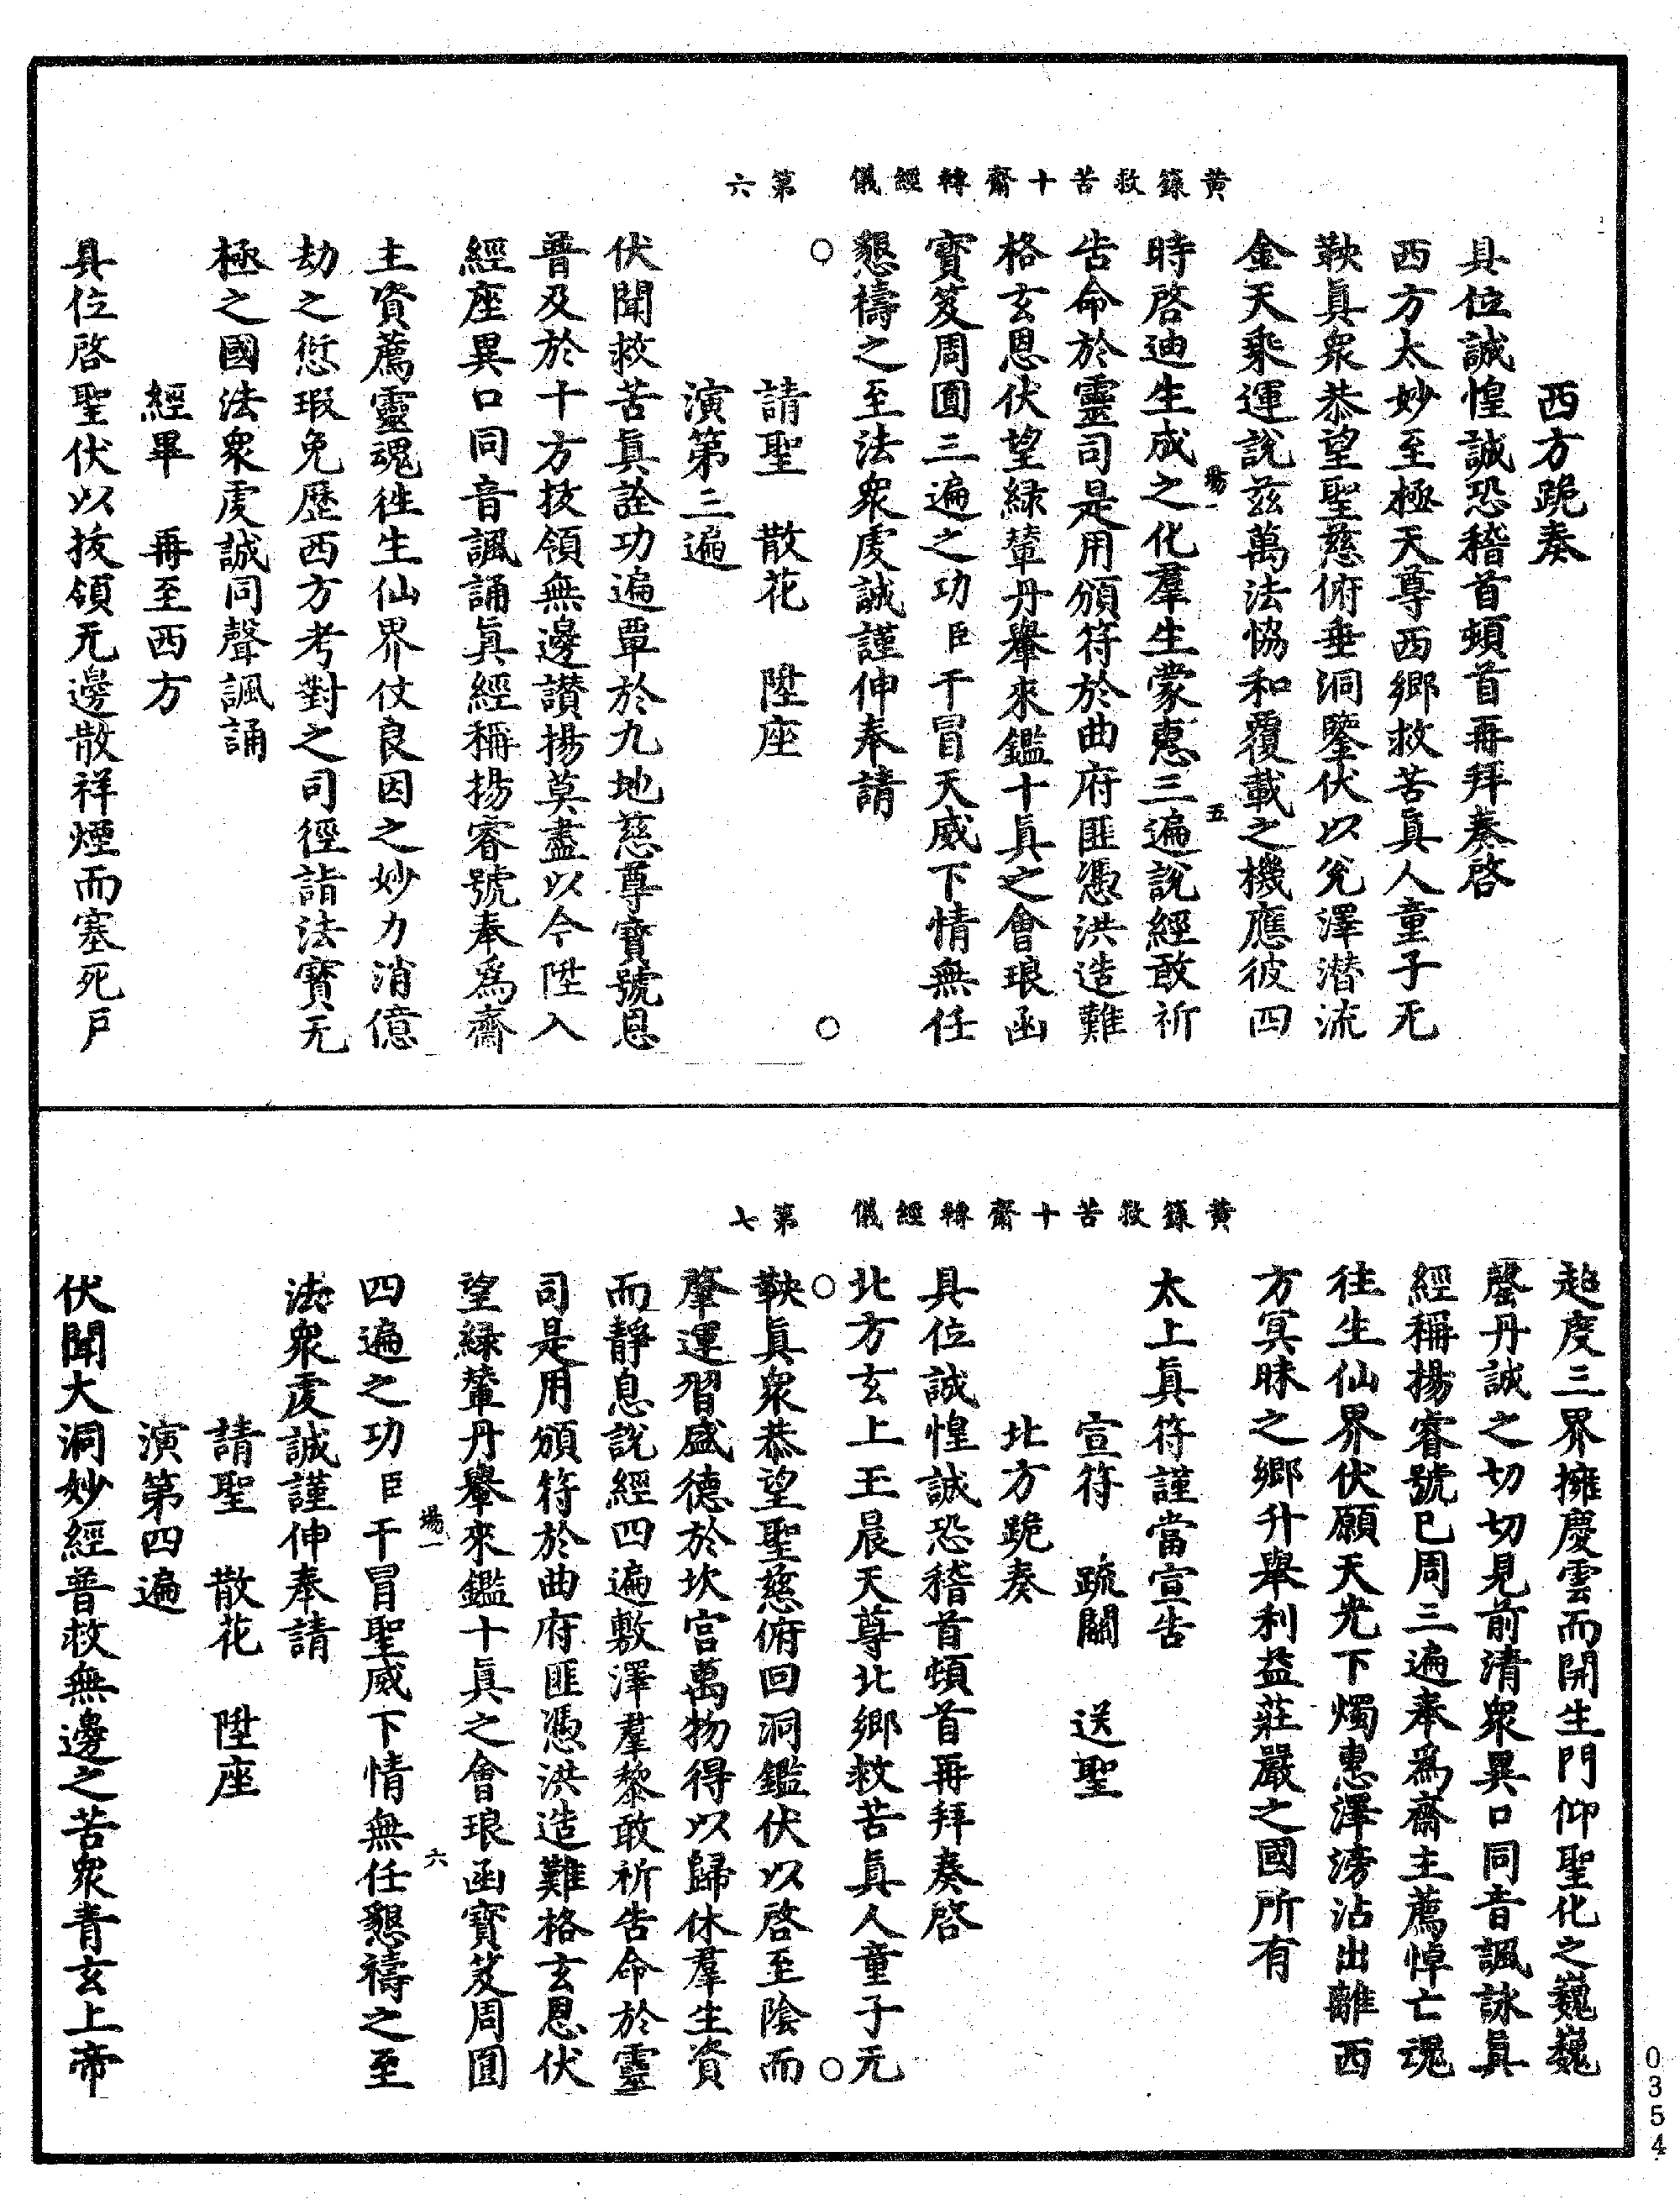 黃籙救苦十齋轉經儀　第六
西方跪奏
具位誠惶誠恐稽首頓首再拜奏啓
西方太妙至極天尊西鄉救苦眞人童子无
鞅眞衆恭望聖慈俯垂洞鑒伏以兌澤潛流
金天乘運說兹萬法恊和覆載之機應彼四
場一　五
時啓迪生成之化羣生蒙惠三遍說經敢祈
告命於靈司是用頒符於曲府匪憑洪造難
格玄恩伏望緑輦丹轝來鑑十眞之會琅函
寶笈周圓三遍之功臣干冒天威下情無任
懇禱之至法衆虔誠謹伸奉請
○　○
請聖　散花　陞座
演第三遍
伏聞救苦眞詮功遍覃於九地慈尊寶號恩
普及於十方拔領無邊讃揚莫盡以今陞入
經座異口同音諷誦眞經稱揚睿號奉爲齋
主資薦靈魂徃生仙界仗良因之妙力消億
劫之愆瑕免歷西方考對之司徑詣法寶无
極之國法衆虔誠同聲諷誦
經畢　再至西方
具位啓聖伏以拔領无邊散祥煙而塞死戶
黃籙救苦十齋轉經儀　第七
超度三界擁慶雲而開生門仰聖化之巍巍
罄丹誠之切切見前清衆異口同音諷詠眞
經稱揚睿號已周三遍奉爲齋主薦悼亡魂
往生仙界伏願天光下燭惠澤滂沾出離西
方冥昧之鄉升舉利益莊嚴之國所有
太上眞符謹當宣告
宣符　䟽關　送聖
北方跪奏
具位誠惶誠恐稽首頓首再拜奏啓
北方玄上玉晨天尊北鄉救苦眞人童子元
○　○
鞅眞衆恭望聖慈俯回洞鑑伏以啓至陰而
肇運習盛德於坎宮萬物得以歸休羣生資
而靜息說經四遍敷澤羣黎敢祈告命於靈
司是用頒符於曲府匪憑洪造難格玄恩伏
望緑輦丹轝來鑑十眞之會琅函寶笈周圓
場一　六
四遍之功臣干冒聖威下情無任懇禱之至
法衆虔誠謹伸奉請
請聖　散花　陞座
演第四遍
伏聞大洞妙經普救無邊之苦衆青玄上帝
0354